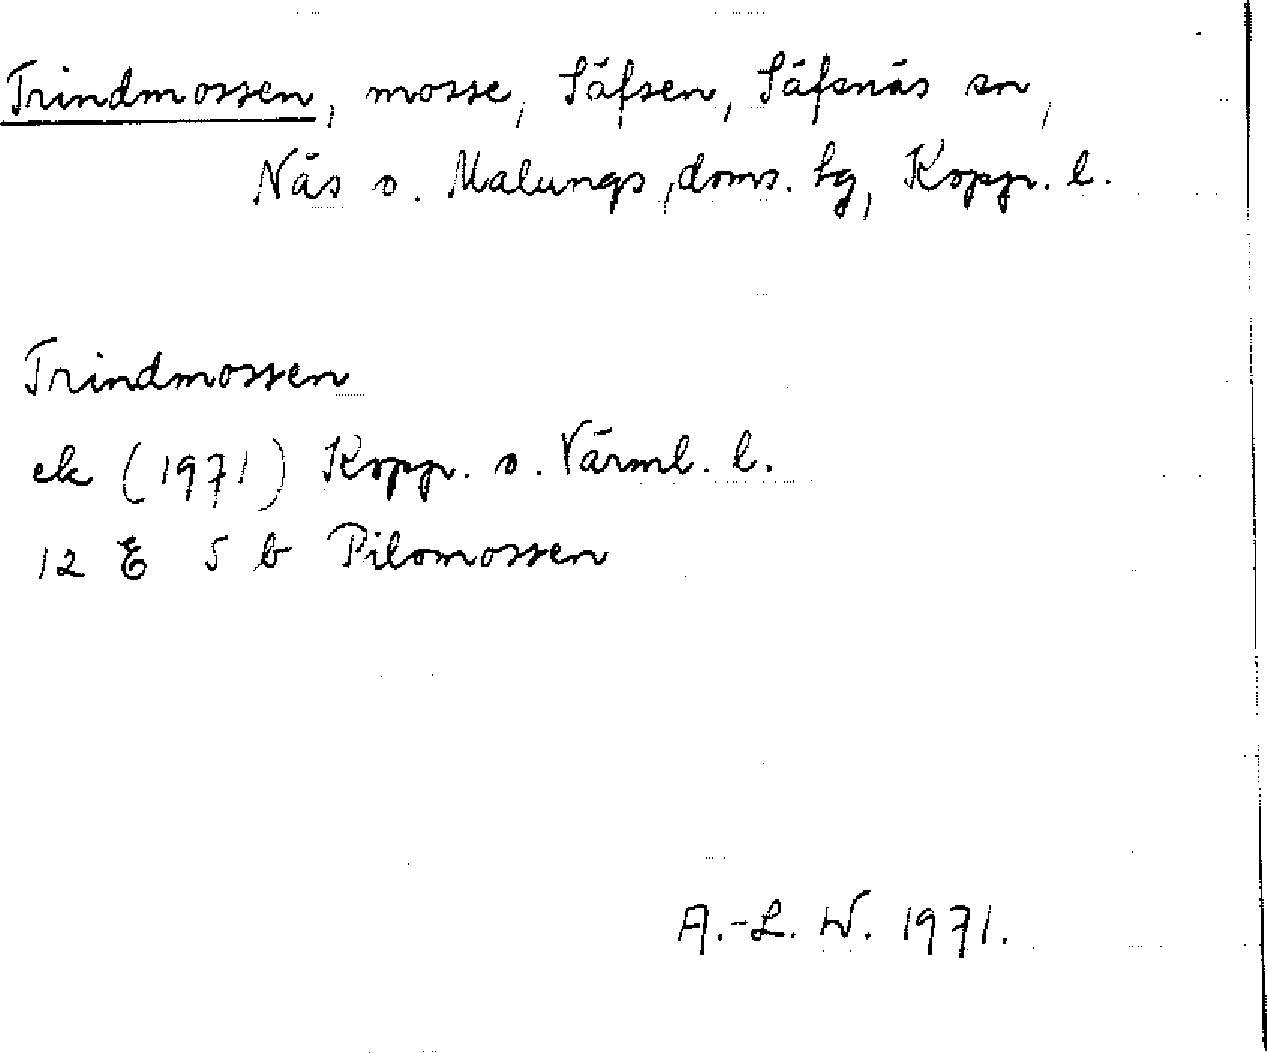 Trindmossen, mosse, Säfsen, Säfsnäs sn,
Näs o. Malungs, doms. tg, Kopp. l.
Trindmossen
ek (1971) Kopp. o. Värml. l.
12 E 5 b Pilomossen
A.-L. W. 1971.